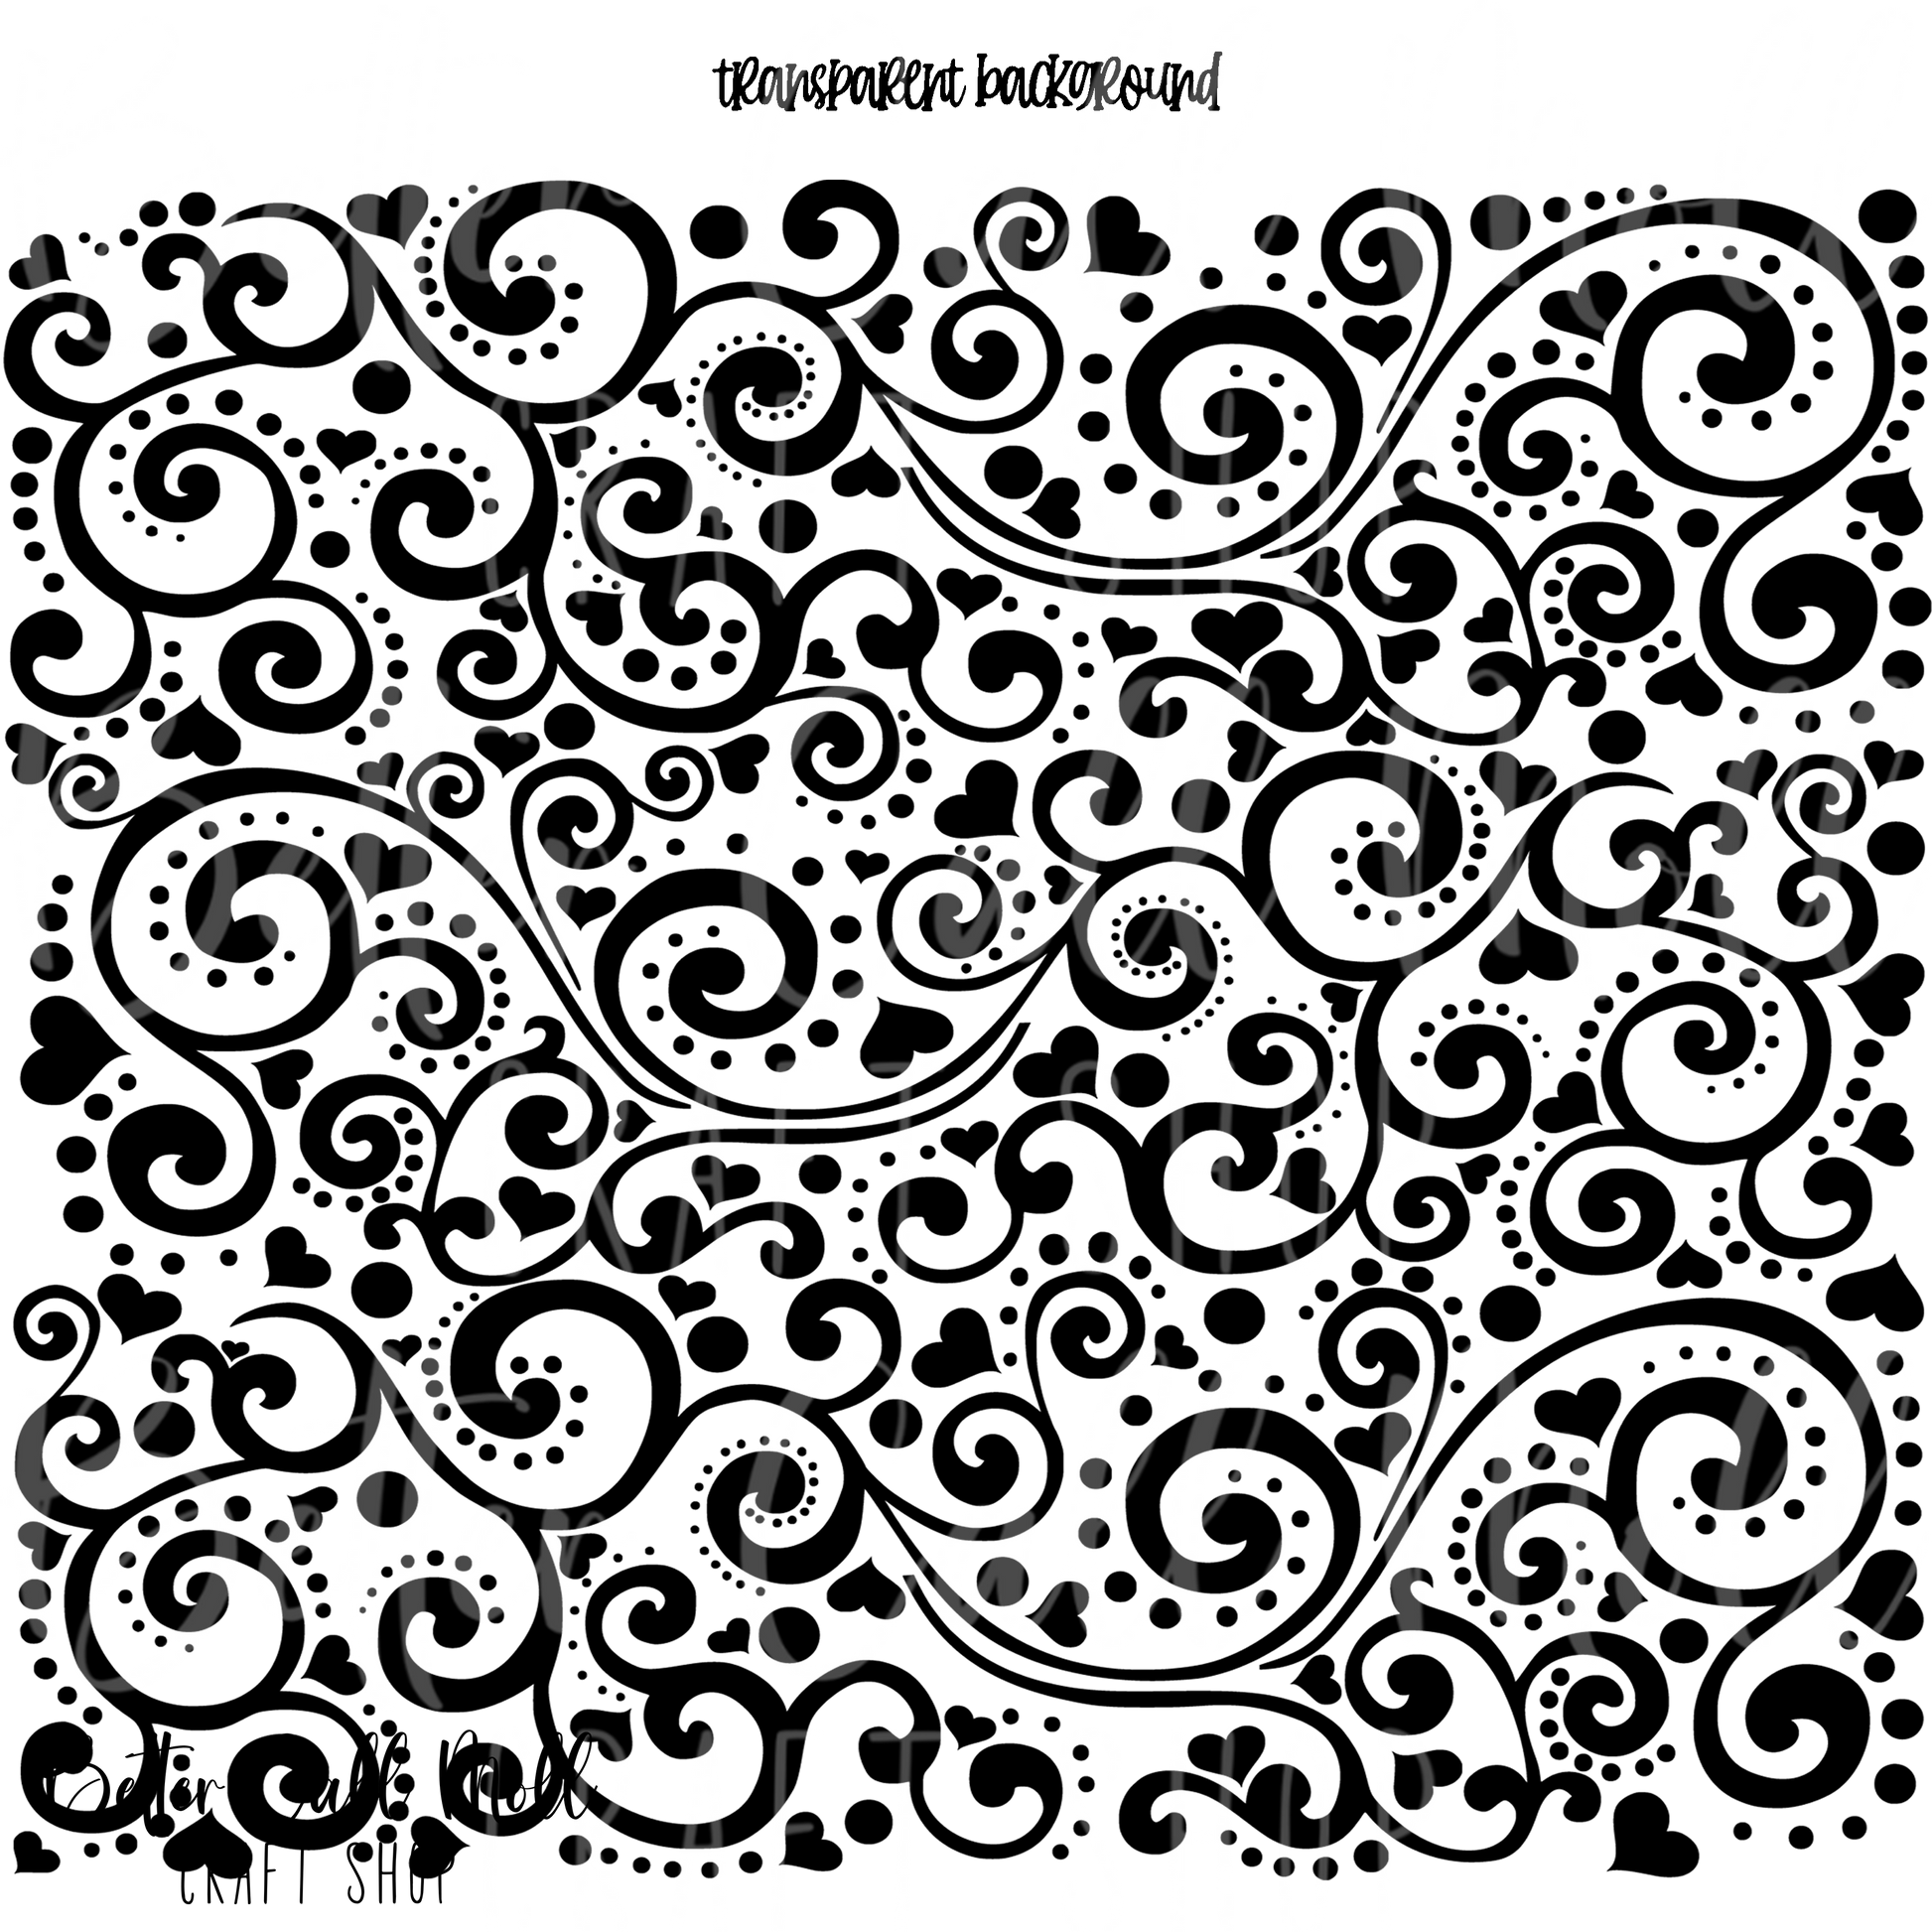 transparent background
Better Call Noll
CRAFT SHOP